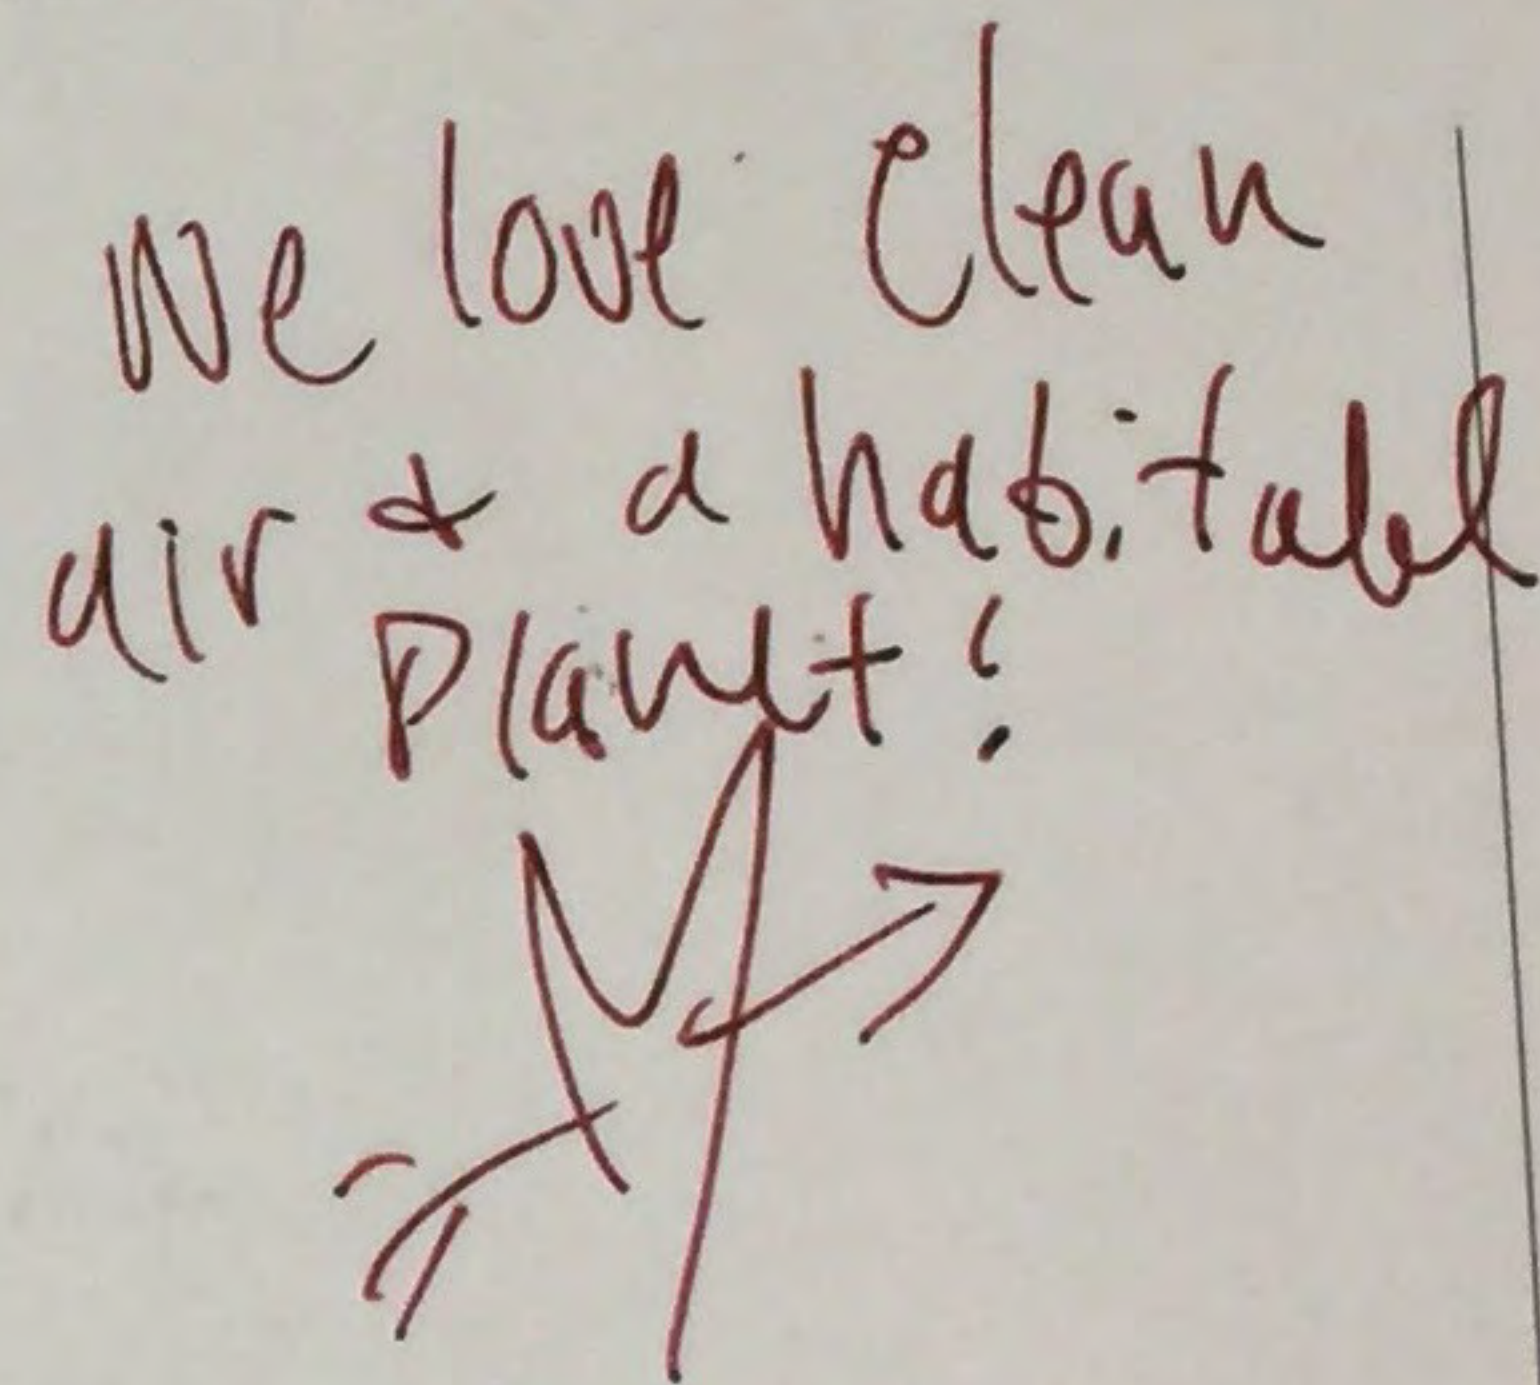 We love clean
air & a habitable
planet!